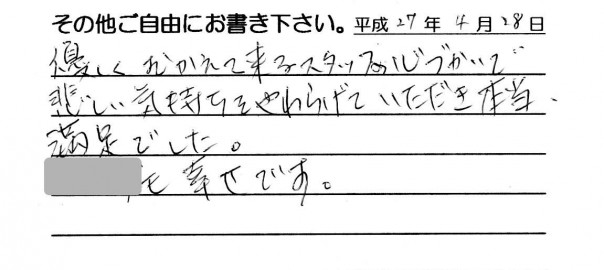 その他ご自由にお書き下さい。平成27年4月28日
優しくむかえて来るスタッフの心づかいで
悲しい気持ちをやわらげていただき本当、
満足でした。
も幸せです。